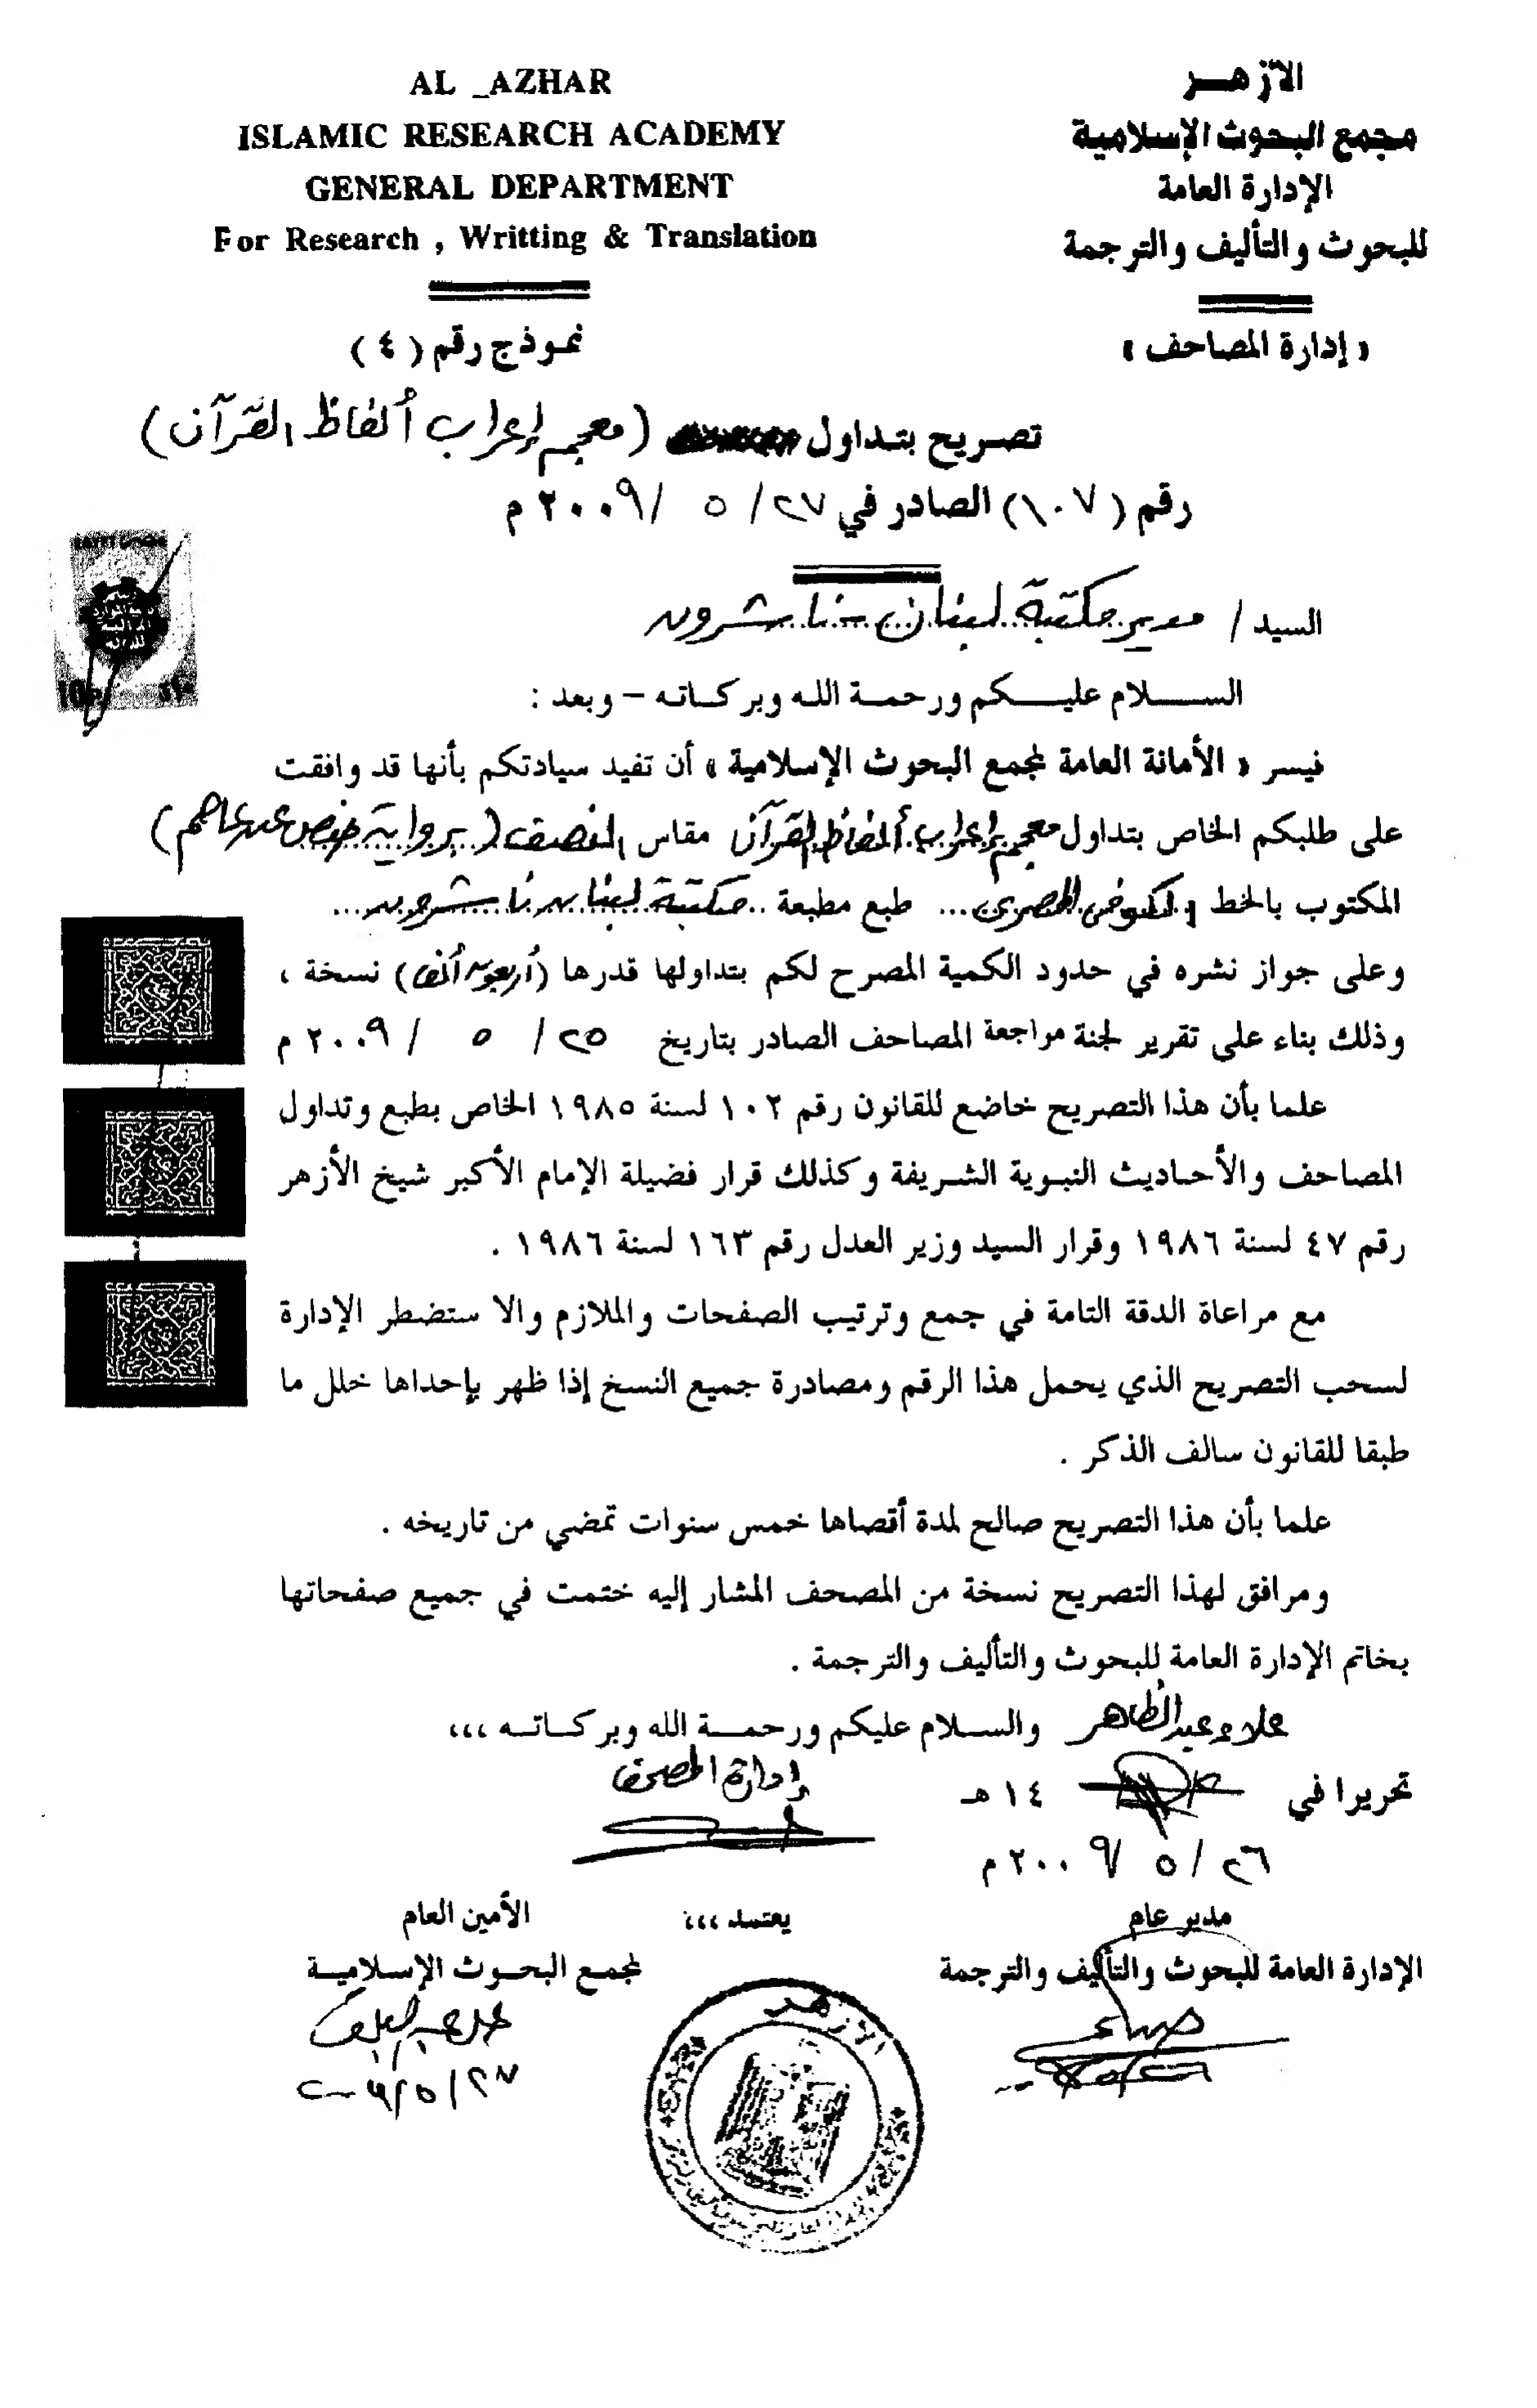 AL _AZHAR
ISLAMIC RESEARCH ACADEMY
GENERAL DEPARTMENT
For Research , Writting & Translation
الأزهـــر
مجمع البحوث الإسلامية
الإدارة العامة
للبحوث والتأليف والترجمة
« إدارة المصاحف »
نمـوذج رقم ( ٤ )
تصـريح بتـداول (معجم إعراب ألفاظ القرآن)
رقم (١٠٧) الصادر في ٢٧/ ٥ /٢٠٠٩ م
السيد / مدير مكتبة لبنان ناشرون
الســـلام عليـــكم ورحمـة اللـه وبركـاتـه – وبعد :
فيسر « الأمانة العامة لمجمع البحوث الإسلامية » أن تفيد سيادتكم بأنها قد وافقت
على طلبكم الخاص بتداول معجم إعراب ألفاظ القرآن مقاس النصف (برواية حفص عن عاصم)
المكتوب بالخط ... طبع مطبعة .. مكتبة لبنان ناشرون ...
وعلى جواز نشره في حدود الكمية المصرح لكم بتداولها قدرها (أربعون ألف) نسخة ،
وذلك بناء على تقرير لجنة مواجعة المصاحف الصادر بتاريخ ٢٥ / ٥ / ٢٠٠٩ م
علما بأن هذا التصريح خاضع للقانون رقم ١٠٢ لسنة ١٩٨٥ الخاص بطبع وتداول
المصاحف والأحاديث النبوية الشريفة وكذلك قرار فضيلة الإمام الأكبر شيخ الأزهر
رقم ٤٧ لسنة ١٩٨٦ وقرار السيد وزير العدل رقم ١٦٣ لسنة ١٩٨٦ .
مع مراعاة الدقة التامة في جمع وترتيب الصفحات والملازم والا ستضطر الإدارة
لسحب التصريح الذي يحمل هذا الرقم ومصادرة جميع النسخ إذا ظهر بإحداها خلل ما
طبقا للقانون سالف الذكر .
علما بأن هذا التصريح صالح لمدة أقصاها خمس سنوات تمضي من تاريخه .
ومرافق لهذا التصريح نسخة من المصحف المشار إليه ختمت في جميع صفحاتها
بخاتم الإدارة العامة للبحوث والتأليف والترجمة .
علاء عبد الظاهر والسـلام عليكم ورحمـــة الله وبركــاتــه ،،،
إدارة المصحف
تحريرا في ١٤ هـ
٢٦ / ٥ / ٢٠٠٩ م
مدير عام
الإدارة العامة للبحوث والتأليف والترجمة
يعتمد ،،،
الأمين العام
لمجمع البحوث الإسلامية
٢٧ / ٥ / ٢٠٠٩
الأزهر